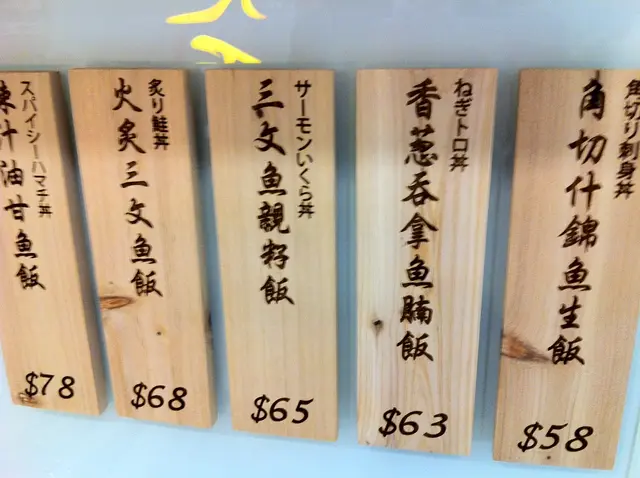 スパイシーハマチ丼
辣汁油甘魚飯
$78
炙り鮭丼
火炙三文魚飯
$68
サーモンいくら丼
三文魚親籽飯
$65
ねぎトロ丼
香葱吞拿魚腩飯
$63
角切り刺身丼
角切什錦魚生飯
$58